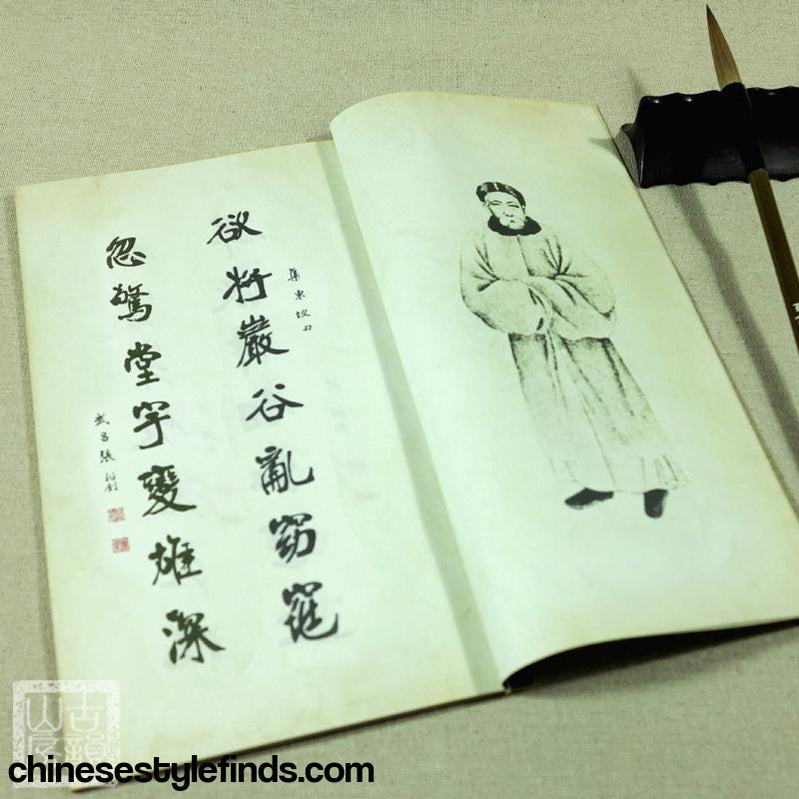 欲將巖谷亂窈窕
集東坡句
忽驚堂宇變雄深
武昌張裕釗
古韻
山房
chinesestylefinds.com